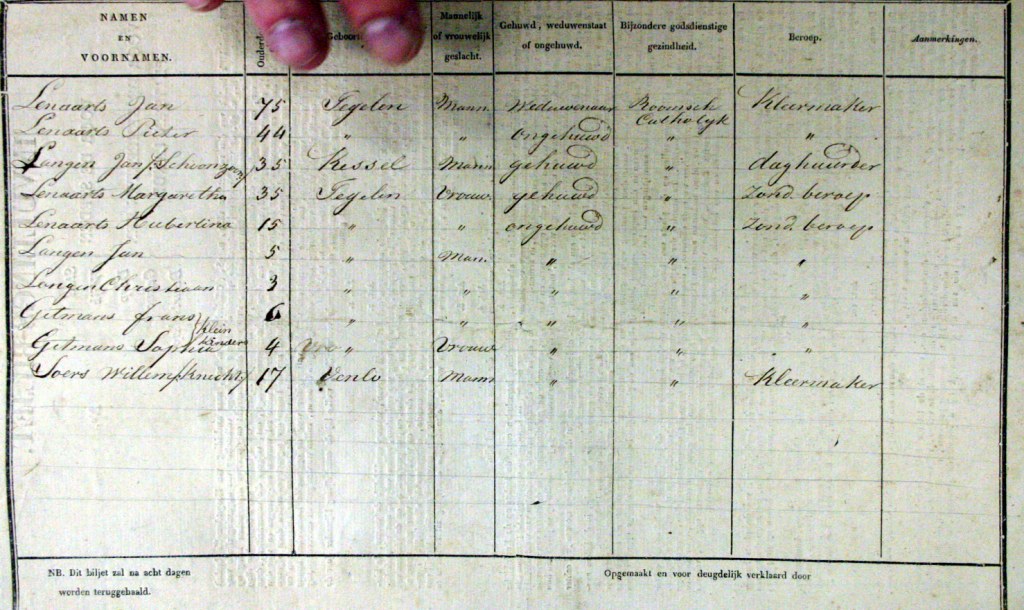 NAMEN EN VOORNAMEN. Ouderd Geboort Mannelijk of vrouwelijk geslacht. Gehuwd, weduwenstaat of ongehuwd. Bijzondere godsdienstige gezindheid. Beroep. Aanmerkingen.
Lenaarts Jan 75 Tegelen Mann Weduwenaar Roomsch Catholyk Kleermaker
Lenaarts Pieter 44 " " ongehuwd " "
Langen Jan /:Schoonzoon/ 35 Kessel Mann gehuwd " daghuurder
Lenaarts Margaretha 35 Tegelen Vrouw. gehuwd " Zond. beroep
Lenaarts Hubertina 15 " " ongehuwd " Zond. beroep
Langen Jan 5 " Man. " " "
Langen Christiaan 3 " " " " "
Gitmans frans 6 " " " " "
klein kinders
Gitmans Sophia 4 " Vrouw " " "
Soers Willem /:Knecht:/ 17 Venlo Mann " " Kleermaker
NB. Dit biljet zal na acht dagen
worden teruggehaald.
Opgemaakt en voor deugdelijk verklaard door